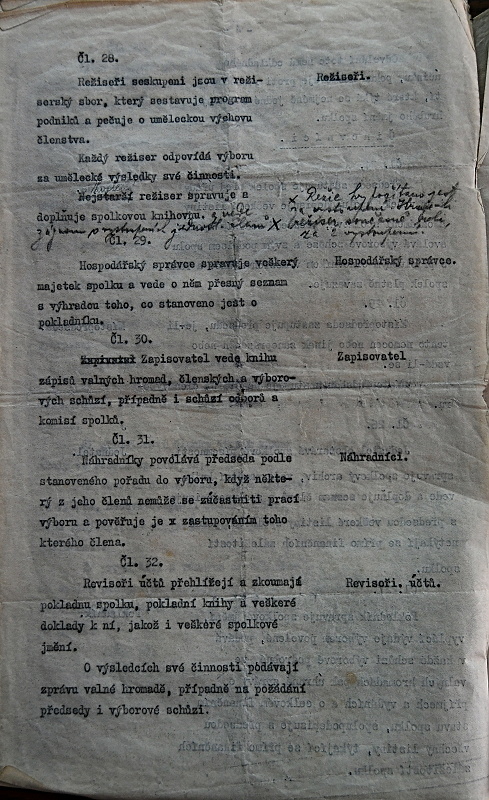 Čl. 28.
Režiseři seskupeni jsou v reži-
serský sbor, který sestavuje program
podniků a pečuje o uměleckou výchovu
členstva.
Režiseři.
Každý režiser odpovídá výboru
za umělecké výsledky své činnosti.
Nejstarší režiser spravuje a
doplňuje spolkovou knihovnu.
Čl. 29.
Hospodářský správce spravuje veškerý
majetek spolku a vede o něm přesný seznam
s výhradou toho, co stanoveno jest o
pokladníku.
Hospodářský správce.
Čl. 30.
Zapisovatel vede knihu
zápisů valných hromad, členských a výboro-
vých schůzí, případně i schůzí odborů a
komisí spolků.
Zapisovatel
Čl. 31.
Náhradníky povolává předseda podle
stanoveného pořadu do výboru, když někte-
rý z jeho členů nemůže se zúčastniti prací
výboru a pověřuje je x zastupováním toho
kterého člena.
Náhradníci.
Čl. 32.
Revisoři účtů přehlížejí a zkoumají
pokladnu spolku, pokladní knihy a veškeré
doklady k ní, jakož i veškeré spolkové
jmění.
Revisoři účtů.
O výsledcích své činnosti podávají
zprávu valné hromadě, případně na požádání
předsedy i výborové schůzi.